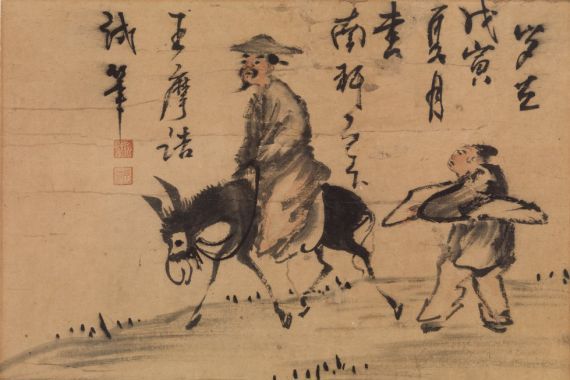 岁在
戊寅
夏月
書
南軒之下
王摩詰
筆